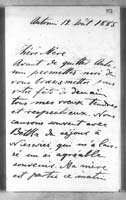 Antonin 12 Août 1885
Chère Mère
Avant de quitter Anto-
nin permettez moi de
vous transmettre pour
votre fête de demain
tous mes vœux tendres
et respectueux. Nous
causons souvent avec
de séjour à
Nieswiez, qui m'a lais-
sé un si agréable
souvenir. Ma mère
est partie ce matin